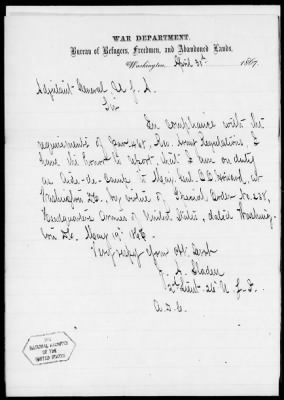 WAR DEPARTMENT,
Bureau of Refugees, Freedmen, and Abandoned Lands.
Washington, April 30th 1867.
Adjutant General U. S. A.
Sir
In compliance with the
requirements of Par. 468, Rev. Army Regulations, I
have the honor to report, that I am on duty
as Aide-de-Camp to Maj. Genl. O. O. Howard, at
Washington D.C., by virtue of Special Order No. 238,
Headquarters Armies of United States, dated Washing-
ton D.C. May 19th 1866.
Very respy your Obt. Servt
J. A. Sladen
2d Lieut. 26 U. S. I.
A. D. C.
THE
NATIONAL ARCHIVES
OF THE
UNITED STATES